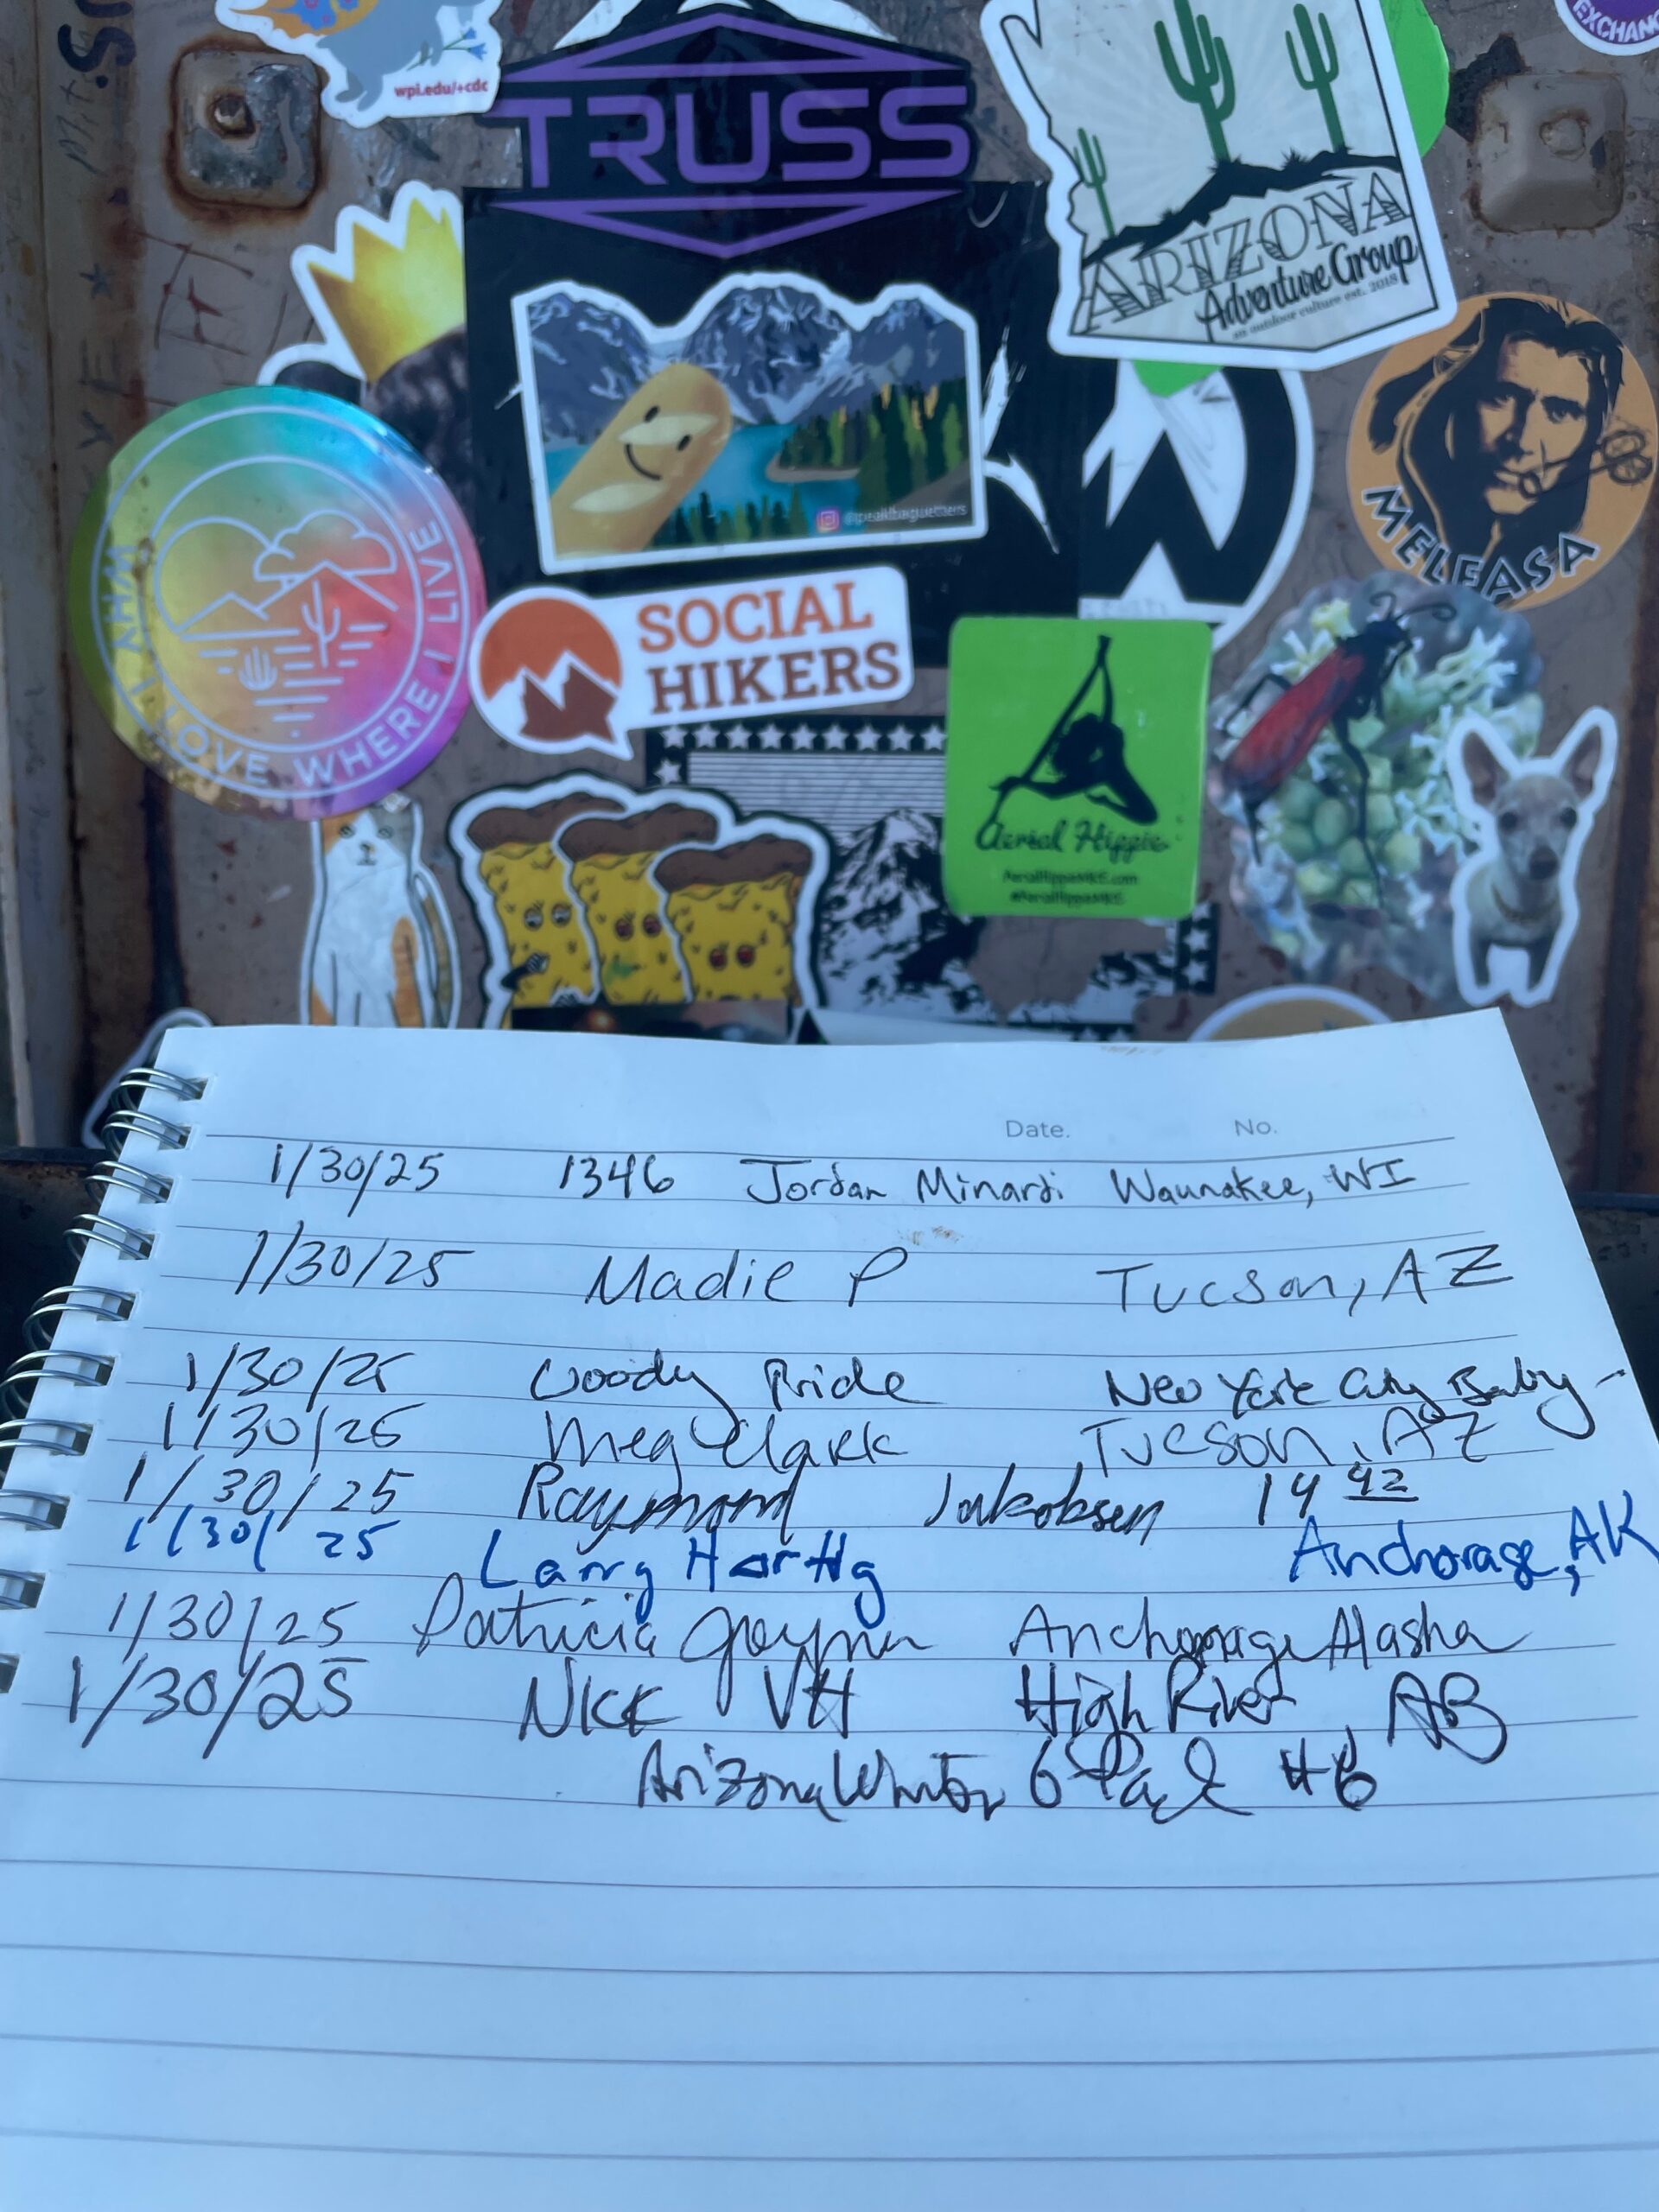 wpi.edu/+cdc
EXCHANG
TRUSS
ARIZONA
Adventure Group
an outdoor culture est. 2018
@peakbaguetters
MELEASA
WHY I LOVE WHERE I LIVE
SOCIAL
HIKERS
Aerial Hippie
AerialHippieMKE.com
#AerialHippieMKE
Date. No.
1/30/25 1346 Jordan Minardi Waunakee, WI
1/30/25 Madie P Tucson, AZ
1/30/25 Woody Pride New York City Baby
1/30/25 Meg Clark Tucson, AZ
1/30/25 Raymond Jakobsen 14 42
1/30/25 Larry Hartig Anchorage, AK
1/30/25 Patricia Anchorage Alaska
1/30/25 Nick VH High River, AB
Arizona Winter 6 Pack #6